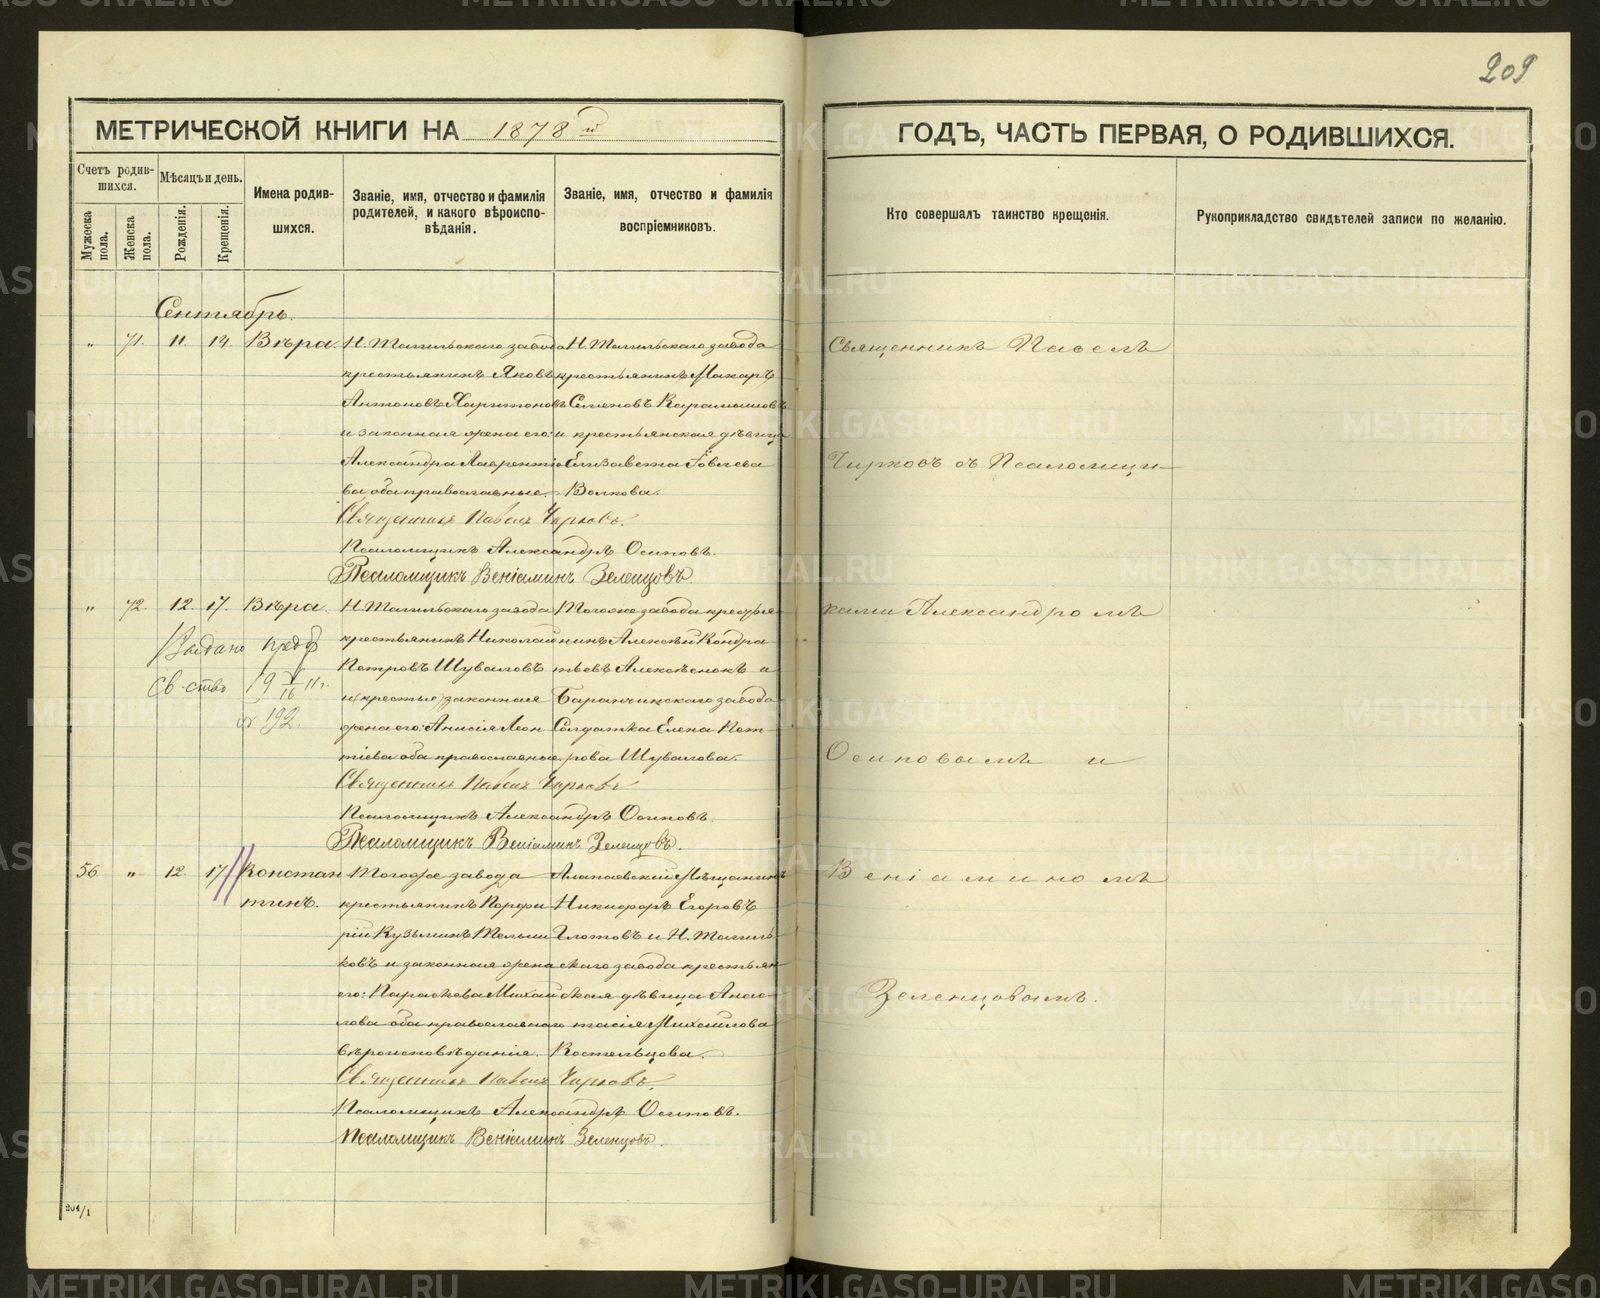 209
МЕТРИЧЕСКОЙ КНИГИ НА 1878 й
ГОДЪ, ЧАСТЬ ПЕРВАЯ, О РОДИВШИХСЯ.
Счетъ родив-
шихся.
Мужеска пола.
Женска пола.
Мѣсяцъ и день.
Рожденія.
Крещенія.
Имена родив-
шихся.
Званіе, имя, отчество и фамилія
родителей, и какого вѣроиспо-
вѣданія.
Званіе, имя, отчество и фамилія
воспріемниковъ.
Кто совершалъ таинство крещенія.
Рукоприкладство свидѣтелей записи по желанію.
Сентябрь.
" 71. 11. 14. Вѣра.
Н. Тагильскаго завода
крестьянинъ Яковъ
Антоновъ Харитоновъ
и законная жена его:
Александра Лаврентіе
ва оба православные.
Н. Тагильскаго завода
крестьянинъ Макаръ
Семеновъ Карамышовъ
и крестьянская дѣвица
Елизавета
Волкова.
Священникъ Павелъ Чирковъ.
Псаломщикъ Александръ Осиповъ.
Псаломщикъ Веніаминъ Зеленцовъ.
" 72. 12. 17. Вѣра.
Выдано
Св-ство
192.
Н. Тагильскаго завода
крестьянинъ Николай
Петровъ Шуваловъ
и (крестья) законная
жена его: Анисія Леон
тіева оба православные
Тогоже завода крестья
нинъ Алексѣй Кондра
тьевъ Алексѣенокъ и
Баранчинскаго завода
Солдатка Елена Пет
рова Шувалова.
Священникъ Павелъ Чирковъ
Псаломщикъ Александръ Осиповъ.
Псаломщикъ Веніаминъ Зеленцовъ.
56 " 12 17 Констан
тинъ.
Тогоже завода
крестьянинъ Порфи
рій Кузьминъ Мельни
ковъ и законная жена
его: Параскева Михай
лова оба православнаго
вѣроисповѣданія.
Алапаевскій Мѣщанинъ
Никифоръ Егоровъ
Глотовъ и Н. Тагиль-
скаго завода крестьян
ская дѣвица Анас-
тасія Михайлова
Костельцова.
Священникъ Павелъ Чирковъ.
Псаломщикъ Александръ Осиповъ.
Псаломщикъ Веніаминъ Зеленцовъ.
Священникъ Павелъ
Чирковъ съ Псаломщи-
ками Александромъ
Осиповымъ и
Веніаминомъ
Зеленцовымъ.
204/1
METRIKI.GASO-URAL.RU